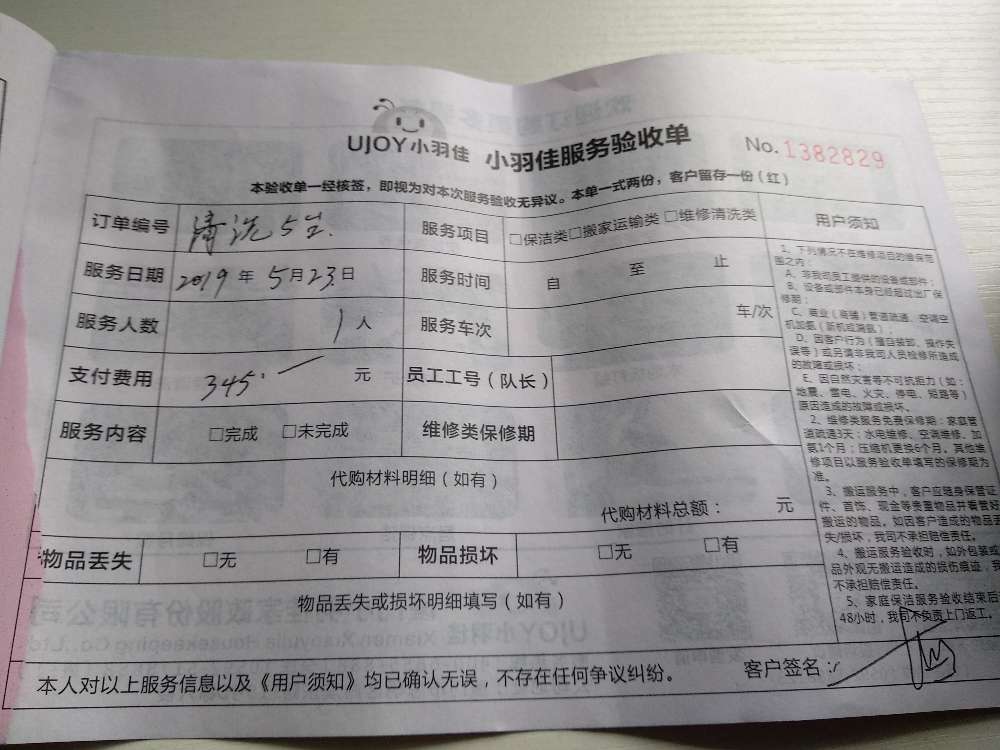 UJOY小羽佳 小羽佳服务验收单 No.1382829
本验收单一经核签，即视为对本次服务验收无异议。本单一式两份，客户留存一份（红）
订单编号 清洗5台. 服务项目 □保洁类□搬家运输类 □维修清洗类
服务日期 2019年5月23日 服务时间 自 至 止
服务人数 1人 服务车次 车/次
支付费用 345.— 元 员工工号（队长）
服务内容 □完成 □未完成 维修类保修期
代购材料明细（如有）
代购材料总额： 元
物品丢失 □无 □有 物品损坏 □无 □有
物品丢失或损坏明细填写（如有）
本人对以上服务信息以及《用户须知》均已确认无误，不存在任何争议纠纷。 客户签名：
用户须知
1、下列情况不在维修项目的维保范
围之内：
A、非我司员工提供的设备或部件；
B、设备或部件本身已经超过出厂保
修期；
C、商业（商铺）管道疏通、空调空
机加氨（新机或漏氨）；
D、因客户行为（擅自装卸、操作失
误等）或另请非我司人员检修所造成
的故障或损坏；
E、因自然灾害等不可抗拒力（如：
地震、雷电、火灾、停电、短路等）
原因造成的故障或损坏。
2、维修类服务免费保修期：家庭管
道疏通3天；水电维修、空调维修、加
氨1个月；压缩机更换6个月。其他维
修项目以服务验收单填写的保修期为
准。
3、搬运服务中，客户应随身保管证
件、首饰、现金等贵重物品并看管好
搬运的物品，如因客户造成的物品丢
失/损坏，我司不承担赔偿责任。
4、搬运服务验收时，如外包装或
品外观无搬运造成的损伤痕迹，我
不承担赔偿责任。
5、家庭保洁服务验收结束后
48小时，我司不负责上门返工。